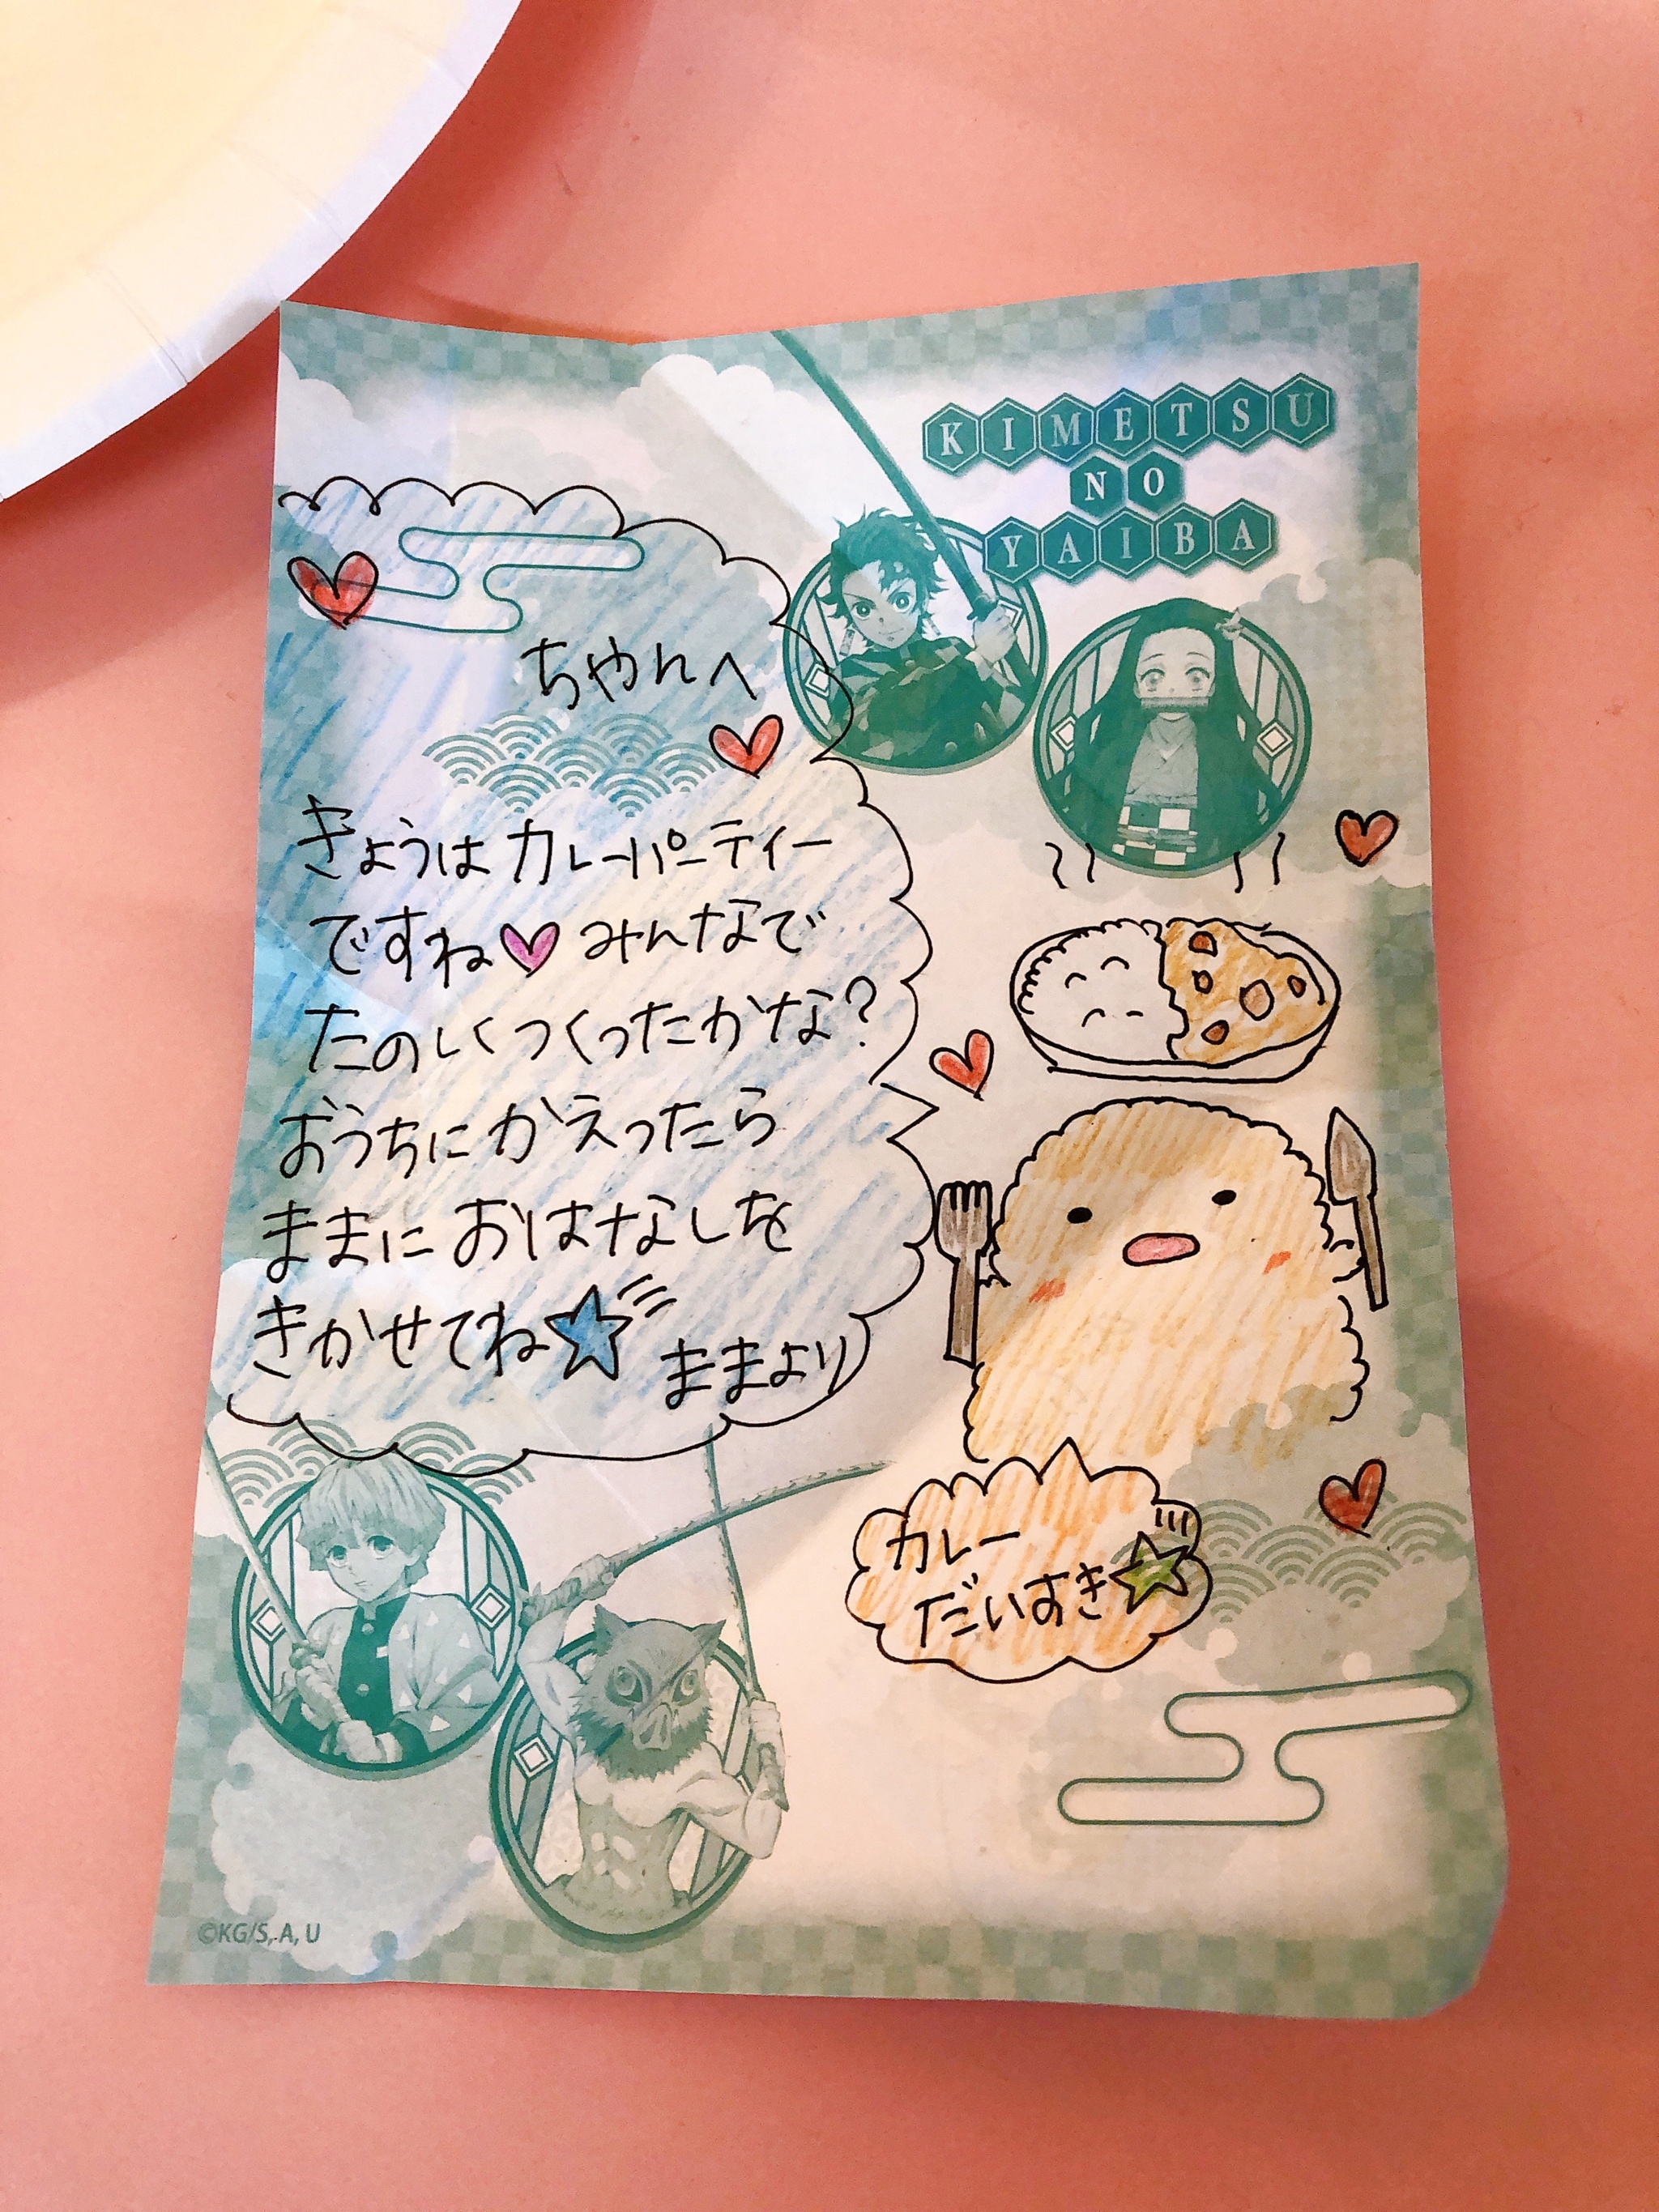 KIMETSU
NO
YAIBA
ちゃんへ
きょうはカレーパーティー
ですね♡みんなで
たのしくつくったかな?
おうちにかえったら
ままにおはなしを
きかせてね☆
ままより
カレー
だいすき☆
©KG/S,A,U